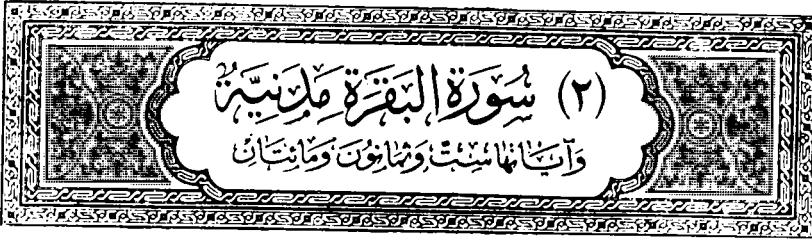 (٢) سُورَةُ البَقَرَةِ مَدَنِيَّةٌ
وَآيَاتُهَا سِتٌّ وَثَمَانُونَ وَمِائَتَانْ